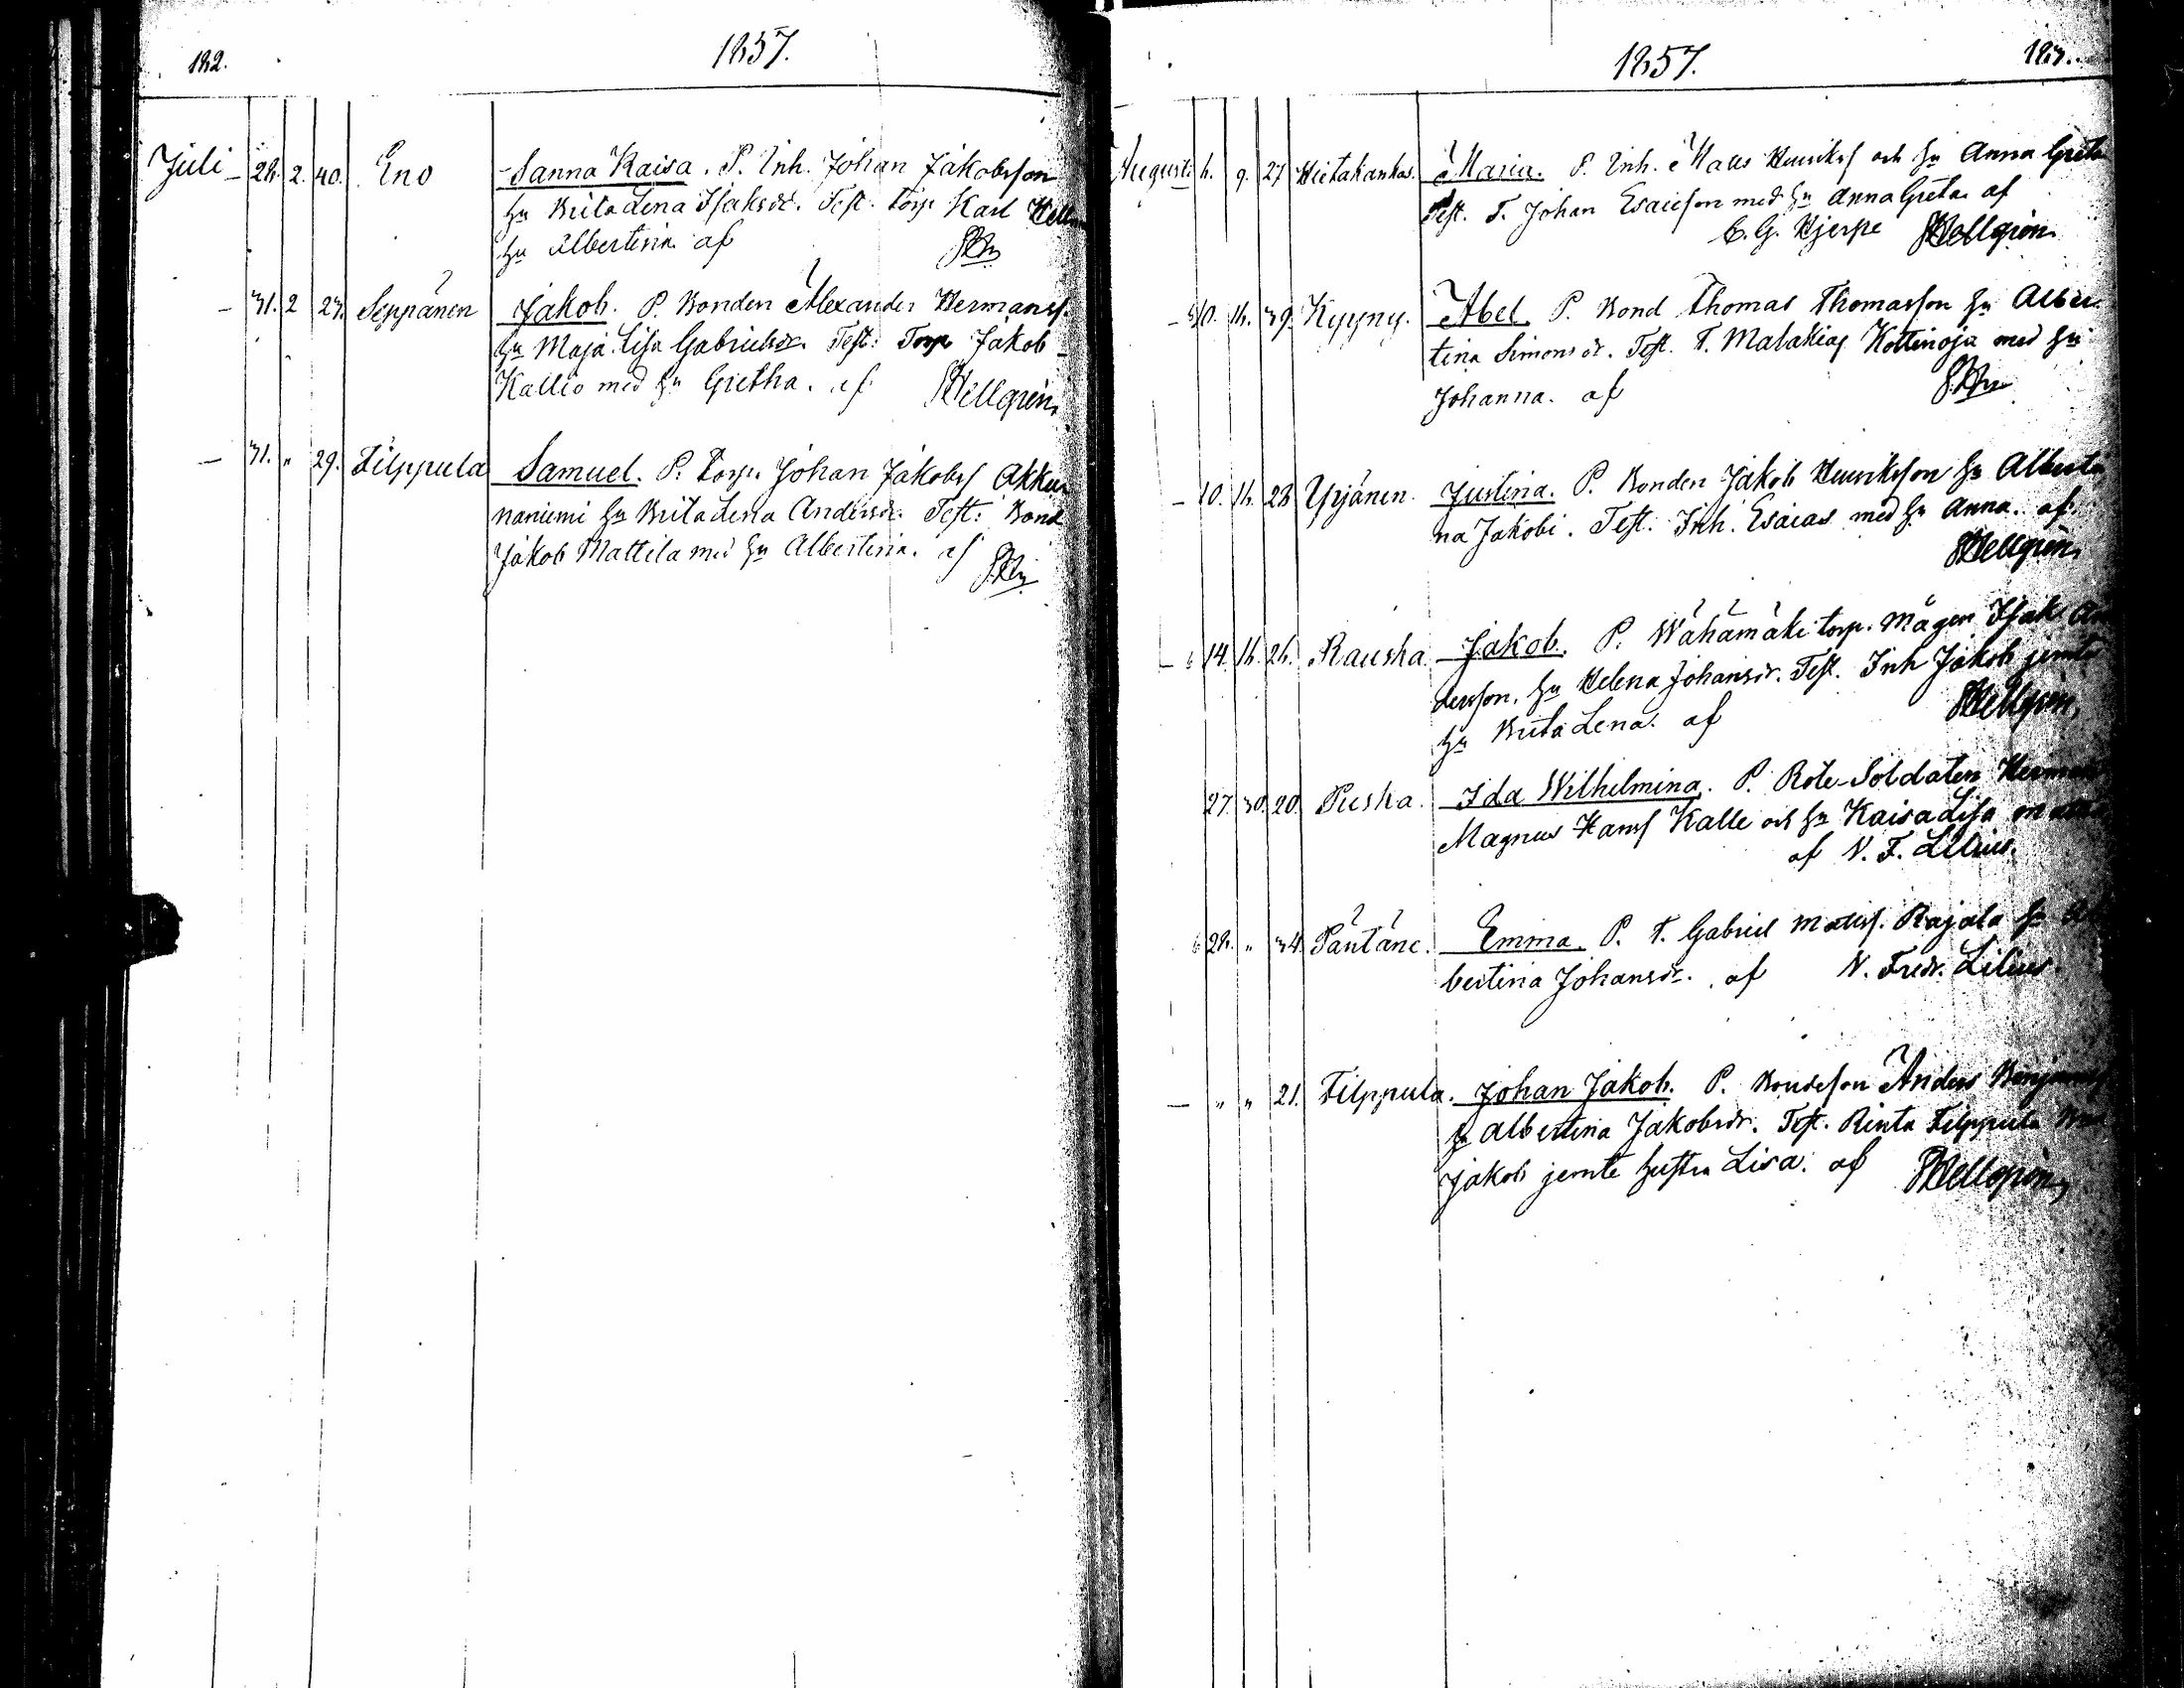 182.
1857.
Juli – 28. 2. 40. Eno Sanna Kaisa. P. Inh. Johan Jakobsson
hu Brita Lena Isaksdr. Test. torp Karl
hu Albertina af
– 31. 2 23. Seppänen Jakob. P. Bonden Alexander Hermans.
hu Maja Lisa Gabrielsdr. Test: Torp Jakob
Kallio med hu Gretha. af Hellgren
– 31. " 29. Filppula Samuel. P. Torp. Johan Jakobss Akku
naniemi hu Brita Lena Andersdr. Test: Bond
Jakob Mattila med hu Albertina. af
1857.
183.
Augusti 8. 9. 27 Hietakankas. Maria. P. Inh. Matts Henrikss och hu Anna Greta
Test. T. Johan Esaiesson med hu Anna Greta af
C. G. Hjerpe Hellgren
– 10. 16. 39. Kyyny. Abel. P. Bond Thomas Thomasson hu Alber
tina Simonsdr. Test. T. Malakias Kottinoja med hu
Johanna. af
– 10. 16. 28 Yrjänen. Justina. P. Bonden Jakob Henriksson hu Alberti
na Jakobi. Test. Inh. Esaias med hu Anna. af
Hellgren
– 14. 16. 26. Rauska. Jakob. P. Wähämäki torp. mågen Isak An
dersson. hu Helena Johansdr. Test. Inh Jakob jemte
hu Brita Lena. af Hellgren
27. 30. 20. Puska. Ida Wilhelmina. P. Rote-Soldaten Herman
Magnus Hanss Kalle och hu Kaisa Lisa
af N. F. Lilius.
28. " 34. Päntäne. Emma. P. T. Gabriel Matss. Rajala hu Al
bertina Johansdr. af N. Fredr. Lilius.
– " " 21. Filppula. Johan Jakob. P. Bondeson Anders Benjamins
hu Albertina Jakobsdr. Test. Rinta Filppula
Jakob jemte hustru Lisa. af Hellgren